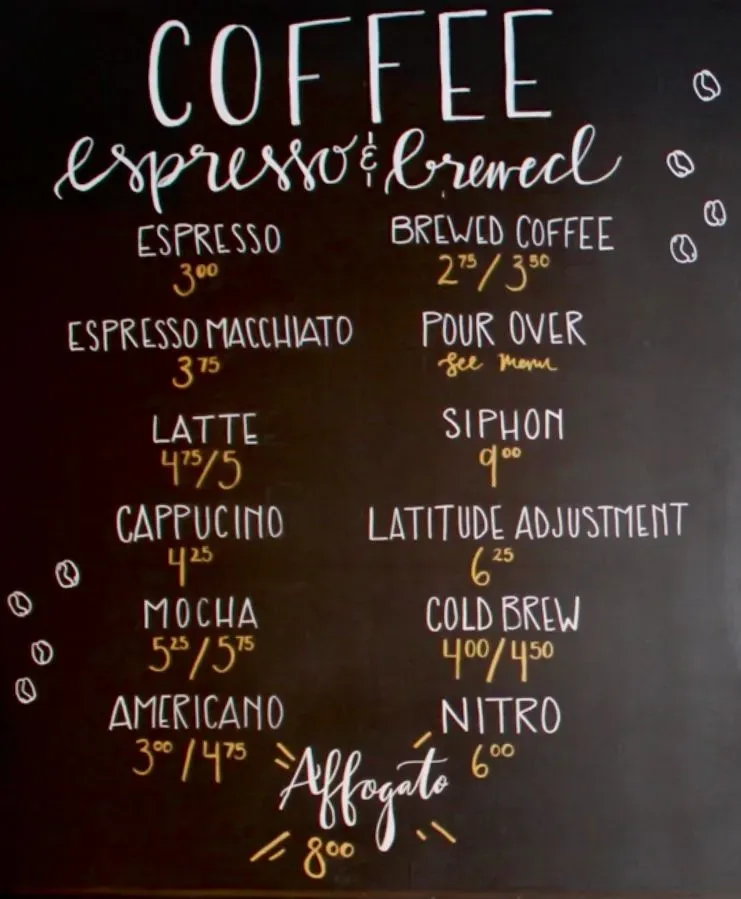 COFFEE
espresso & brewed
ESPRESSO
3.00
BREWED COFFEE
2.75/3.50
ESPRESSO MACCHIATO
3.75
POUR OVER
See Menu
LATTE
4.75/5
SIPHON
9.00
CAPPUCINO
4.25
LATITUDE ADJUSTMENT
6.25
MOCHA
5.25/5.75
COLD BREW
4.00/4.50
AMERICANO
3.00/4.75
NITRO
6.00
Affogato
8.00